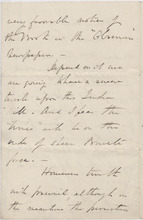 very favorable notice of
the Work in the "Observer"
Newspaper. —
Depend on it we
are going to have a severe
tussle upon this Indian
And I fear the
will be on the
side of sheer Brute
force. —
However truth
will prevail, although in
the meantime the